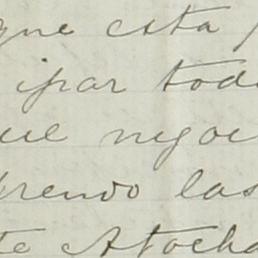 que esta
ipar tod
ue nego
rendo las
te Atocha